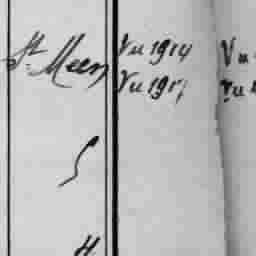 St Meen Vu 1914 Vu
Vu 1917 Vu